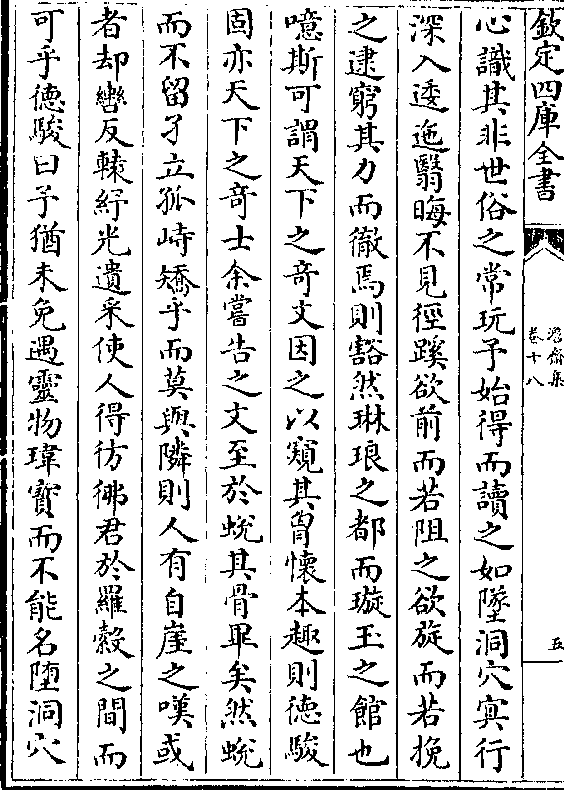 欽定四庫全書
澹齋集
卷十八
五
心識其非世俗之常玩予始得而讀之如墜洞穴冥行
深入逶迤翳晦不見徑蹊欲前而若阻之欲旋而若挽
之逮窮其力而徹焉則豁然琳琅之都而璇玉之館也
噫斯可謂天下之奇文因之以窺其胷懷本趣則德駿
固亦天下之奇士余嘗告之文至於蛻其骨畢矣然蛻
而不留孑立孤峙矯乎而莫與隣則人有自崖之嘆或
者却轡反轅紓光遺采使人得彷彿君於羅縠之間而
可乎德駿曰予猶未免遇靈物瑋寳而不能名墮洞穴